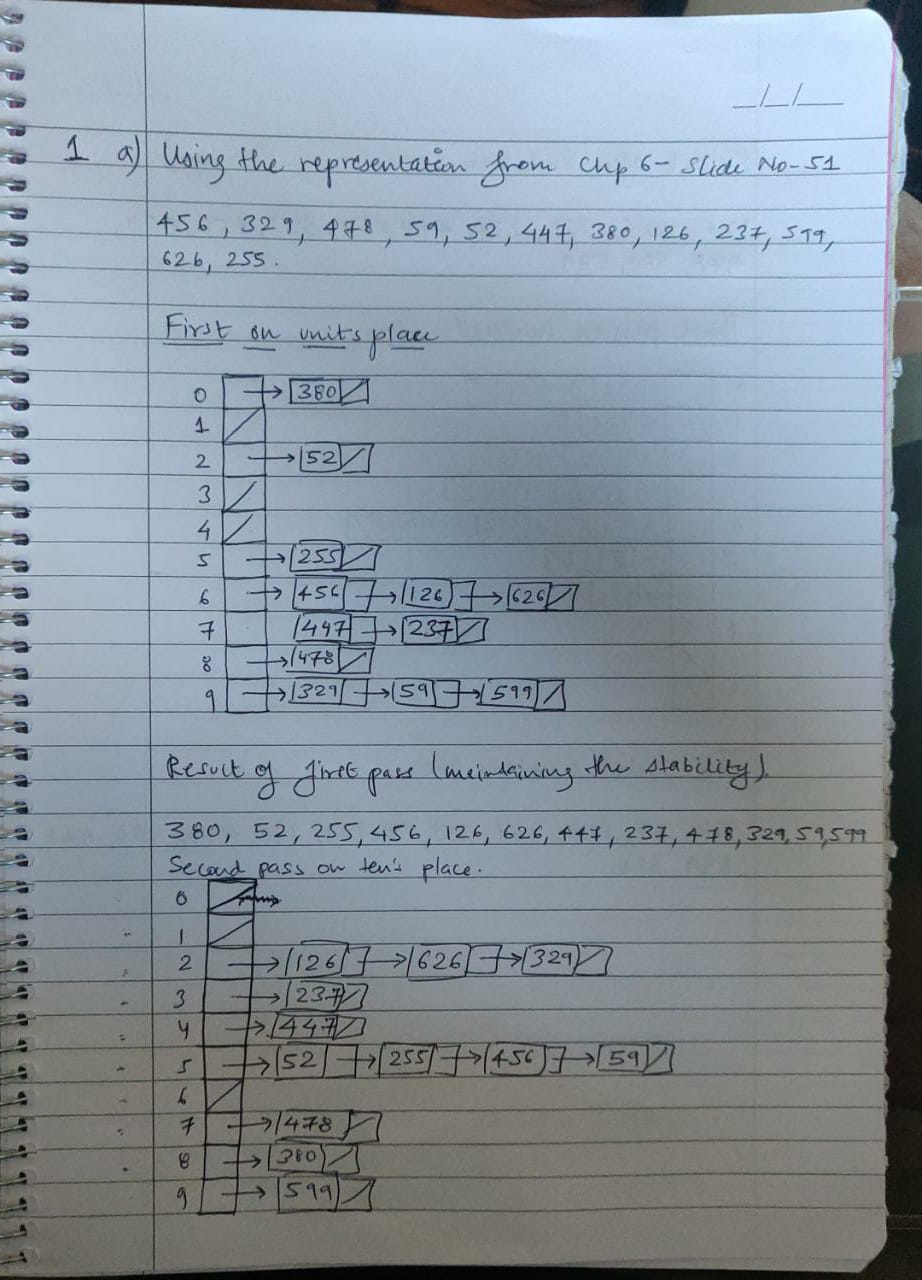 _/_/__
1 a) Using the representation from Chp 6- Slide No-51
456, 329, 478, 59, 52, 447, 380, 126, 237, 599,
626, 255.
First on units place
0 → 380
1
2 → 52
3
4
5 → 255
6 → 456 → 126 → 626
7 447 → 237
8 → 478
9 → 329 → 59 → 599
Result of first pass (meintaining the stability).
380, 52, 255, 456, 126, 626, 447, 237, 478, 329, 59, 599
Second pass on ten's place.
0
1
2 → 126 → 626 → 329
3 → 237
4 → 447
5 → 52 → 255 → 456 → 59
6
7 → 478
8 → 380
9 → 599